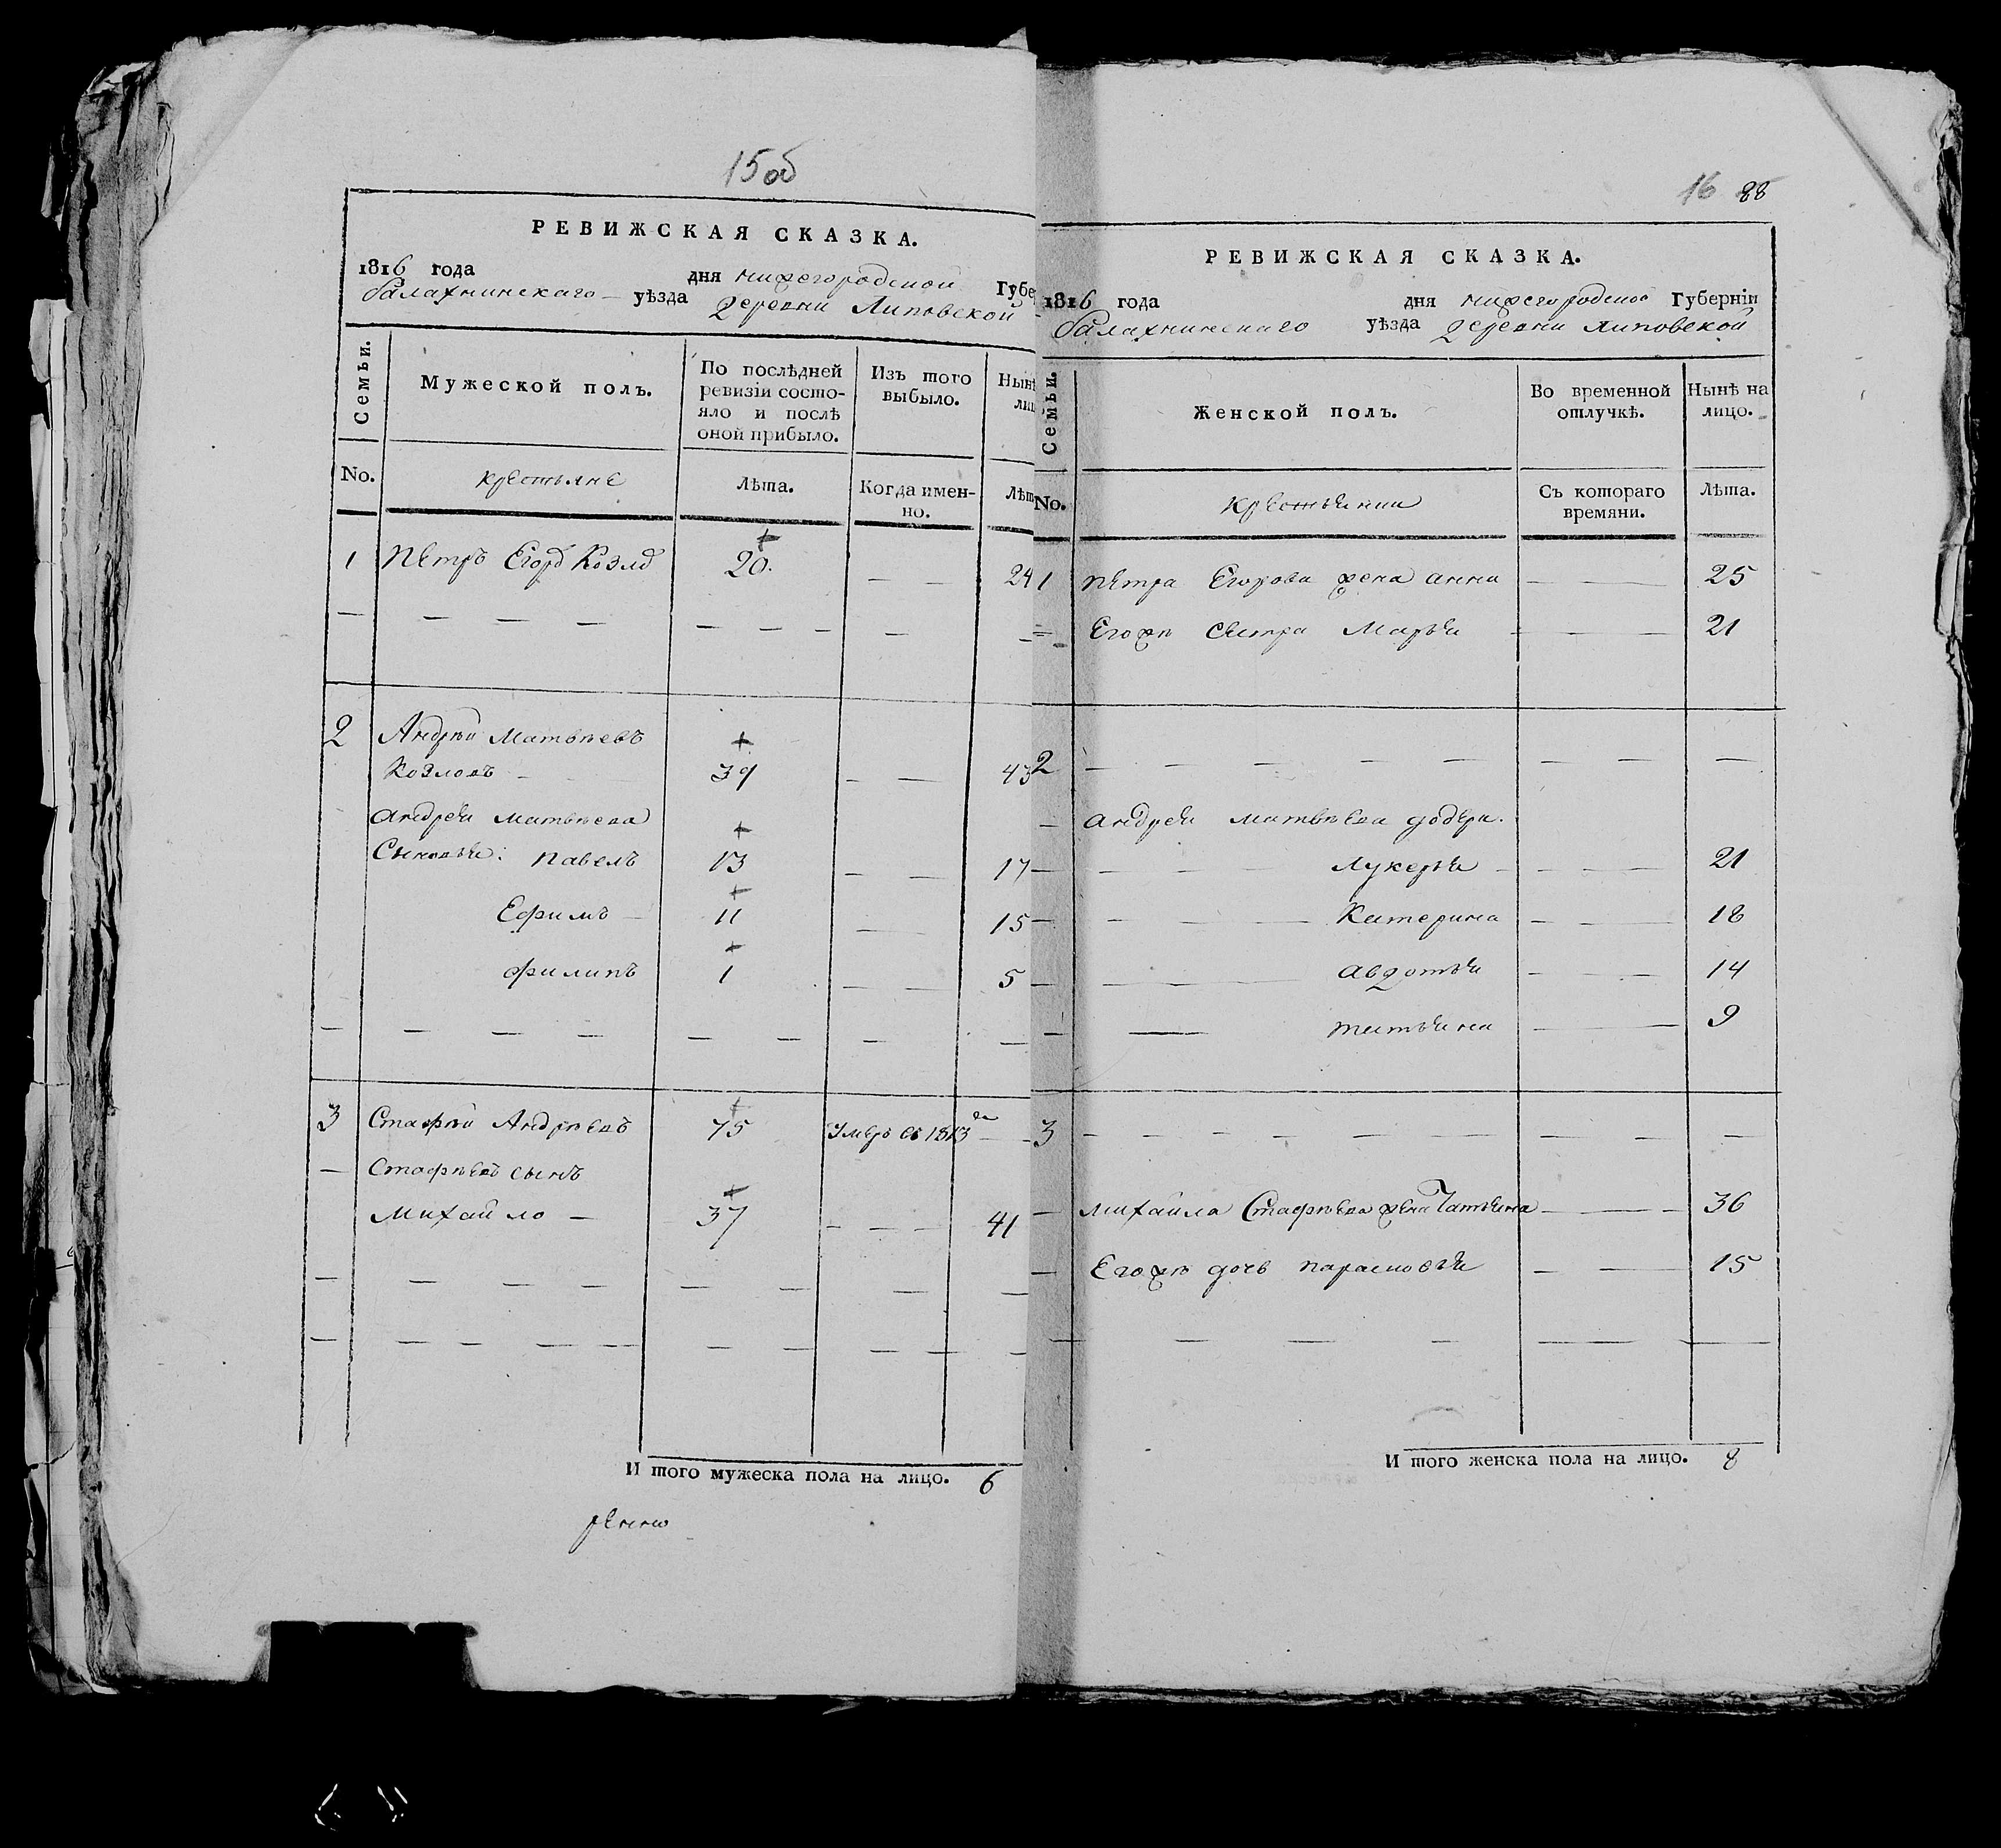 15 об
РЕВИЖСКАЯ СКАЗКА.
1816 года дня нижегородской Губе
балахнинскаго уѣзда деревни Липовской
Семьи. Мужеской полъ. По послѣдней ревизіи состо-яло и послѣ оной прибыло. Изъ того выбыло. Нынѣ ли
No. крестьяне Лѣта. Когда имен-но. Лѣт
1 Петръ Егоръ Козл 20. — — 24
— — — — — — — — —
2 Андрѣй Матвѣевъ
Козловъ — 39 — — 43
Андрея Матвѣева
Сыновья: Павелъ 13 — — 17
Ефимъ — 11 — — 15
Филипъ 1 — — 5
— — — — — — — —
3 Стафѣй Андрѣевъ 75 Умеръ въ 1813 —
— Стафѣевъ сынъ
Михайло — 37 — — — 41
— — — — — — — —
— — — — — — — — — —
И того мужеска пола на лицо. 6
16 88
РЕВИЖСКАЯ СКАЗКА.
1816 года дня нижегородской Губерніи
балахнинскаго уѣзда деревни Липовской
Семьи. Женской полъ. Во временной отлучкѣ. Нынѣ на лицо.
No. крестьянки Съ котораго времяни. Лѣта.
1 Петра Егорова жена Анна — — 25
Егожъ сестра Марья — — — 21
2 — — — — — — — —
— Андрея Матвѣева дочери.
— — — — Лукерья — — — 21
— — — Катерина — — 18
— — Авдотья — — 14
— — татьяна — 9
3 — — — — — — — — —
— михайла Стафѣева жена Татьяна — — — 36
— Егожъ дочь парасковья — — 15
— — — — — —
И того женска пола на лицо. 8